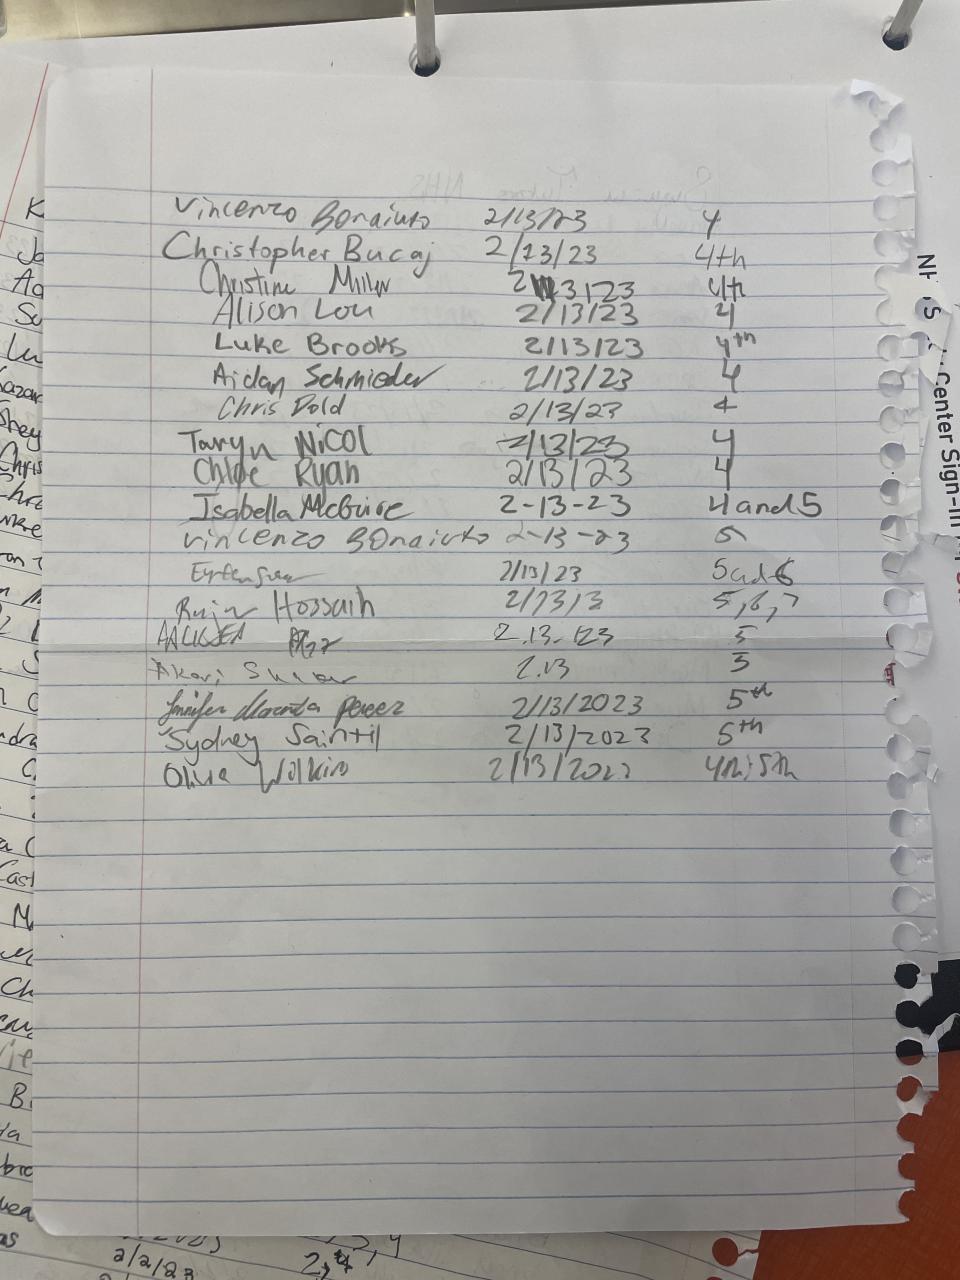 Vincenzo Bonaiuto 2/13/23 4
Christopher Bucaj 2/13/23 4th
Christine Miller 2 3/23 4th
Alison Lou 2/13/23 4
Luke Brooks 2/13/23 4th
Aidan Schmieder 2/13/23 4
Chris Dold 2/13/23 4
Taryn Nicol 2/13/23 4
Chloe Ryan 2/13/23 4
Isabella McGuire 2-13-23 4 and 5
Vincenzo Bonaiuto 2-13-23 5
2/13/23 5 and 6
Hossain 2/13/3 5,6,7
2.13.123 5
Akari 2.13 5
Jennifer Miranda Perez 2/13/2023 5th
Sydney Saintil 2/13/2023 5th
Olivia Wolkin 2/13/2022 4th, 5th
Center Sign-In
2/2/23